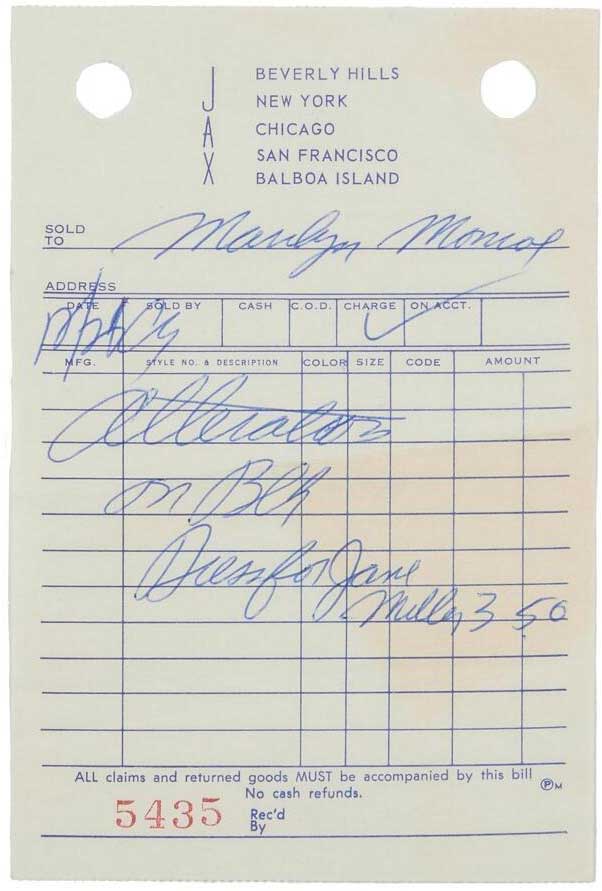 JAX
BEVERLY HILLS
NEW YORK
CHICAGO
SAN FRANCISCO
BALBOA ISLAND
SOLD TO Marilyn Monroe
ADDRESS
DATE SOLD BY CASH C.O.D. CHARGE ON ACCT.
✓
MFG. STYLE NO. & DESCRIPTION COLOR SIZE CODE AMOUNT
Alterations
on Blk
Dress for Jane
Miller 3 50
ALL claims and returned goods MUST be accompanied by this bill
No cash refunds.
5435 Rec'd By
PM